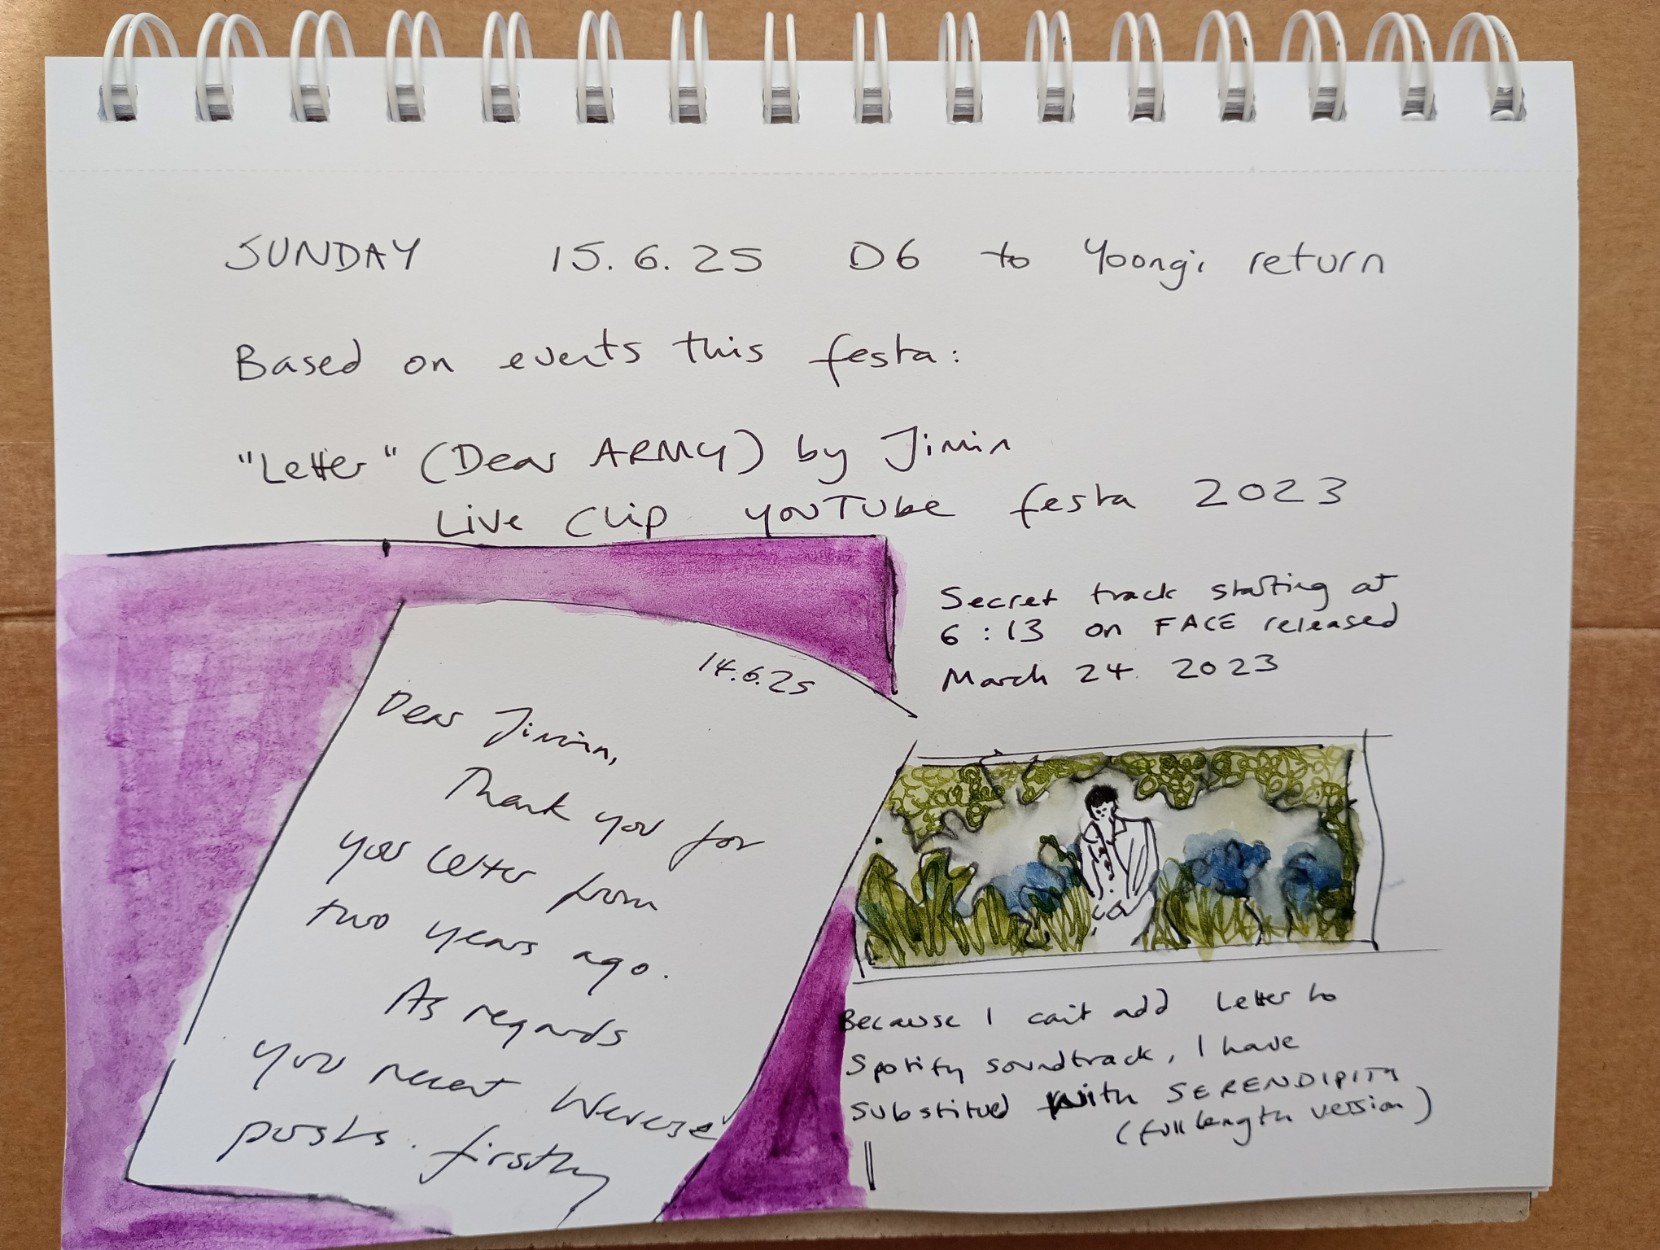 SUNDAY 15.6.25 D6 to Yoongi return
Based on events this festa:
"Letter" (Dear ARMY) by Jimin
Live Clip YOUTUBE festa 2023
Secret track starting at
6:13 on FACE released
March 24. 2023
14.6.25
Dear Jimin,
Thank you for
your letter from
two years ago.
As regards
your recent Weverse
posts. firstly
Because I can't add Letter to
Spotify soundtrack, I have
substitued with SERENDIPITY
(full length version)